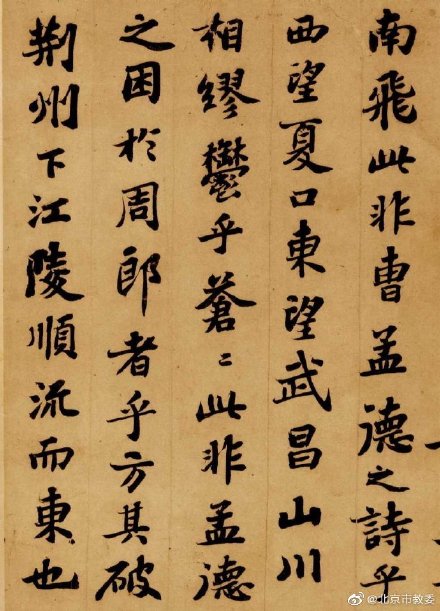 南飛此非曹孟德之詩乎
西望夏口東望武昌山川
相繆鬱乎蒼〻此非孟德
之困於周郎者乎方其破
荆州下江陵順流而東也
@北京市教委